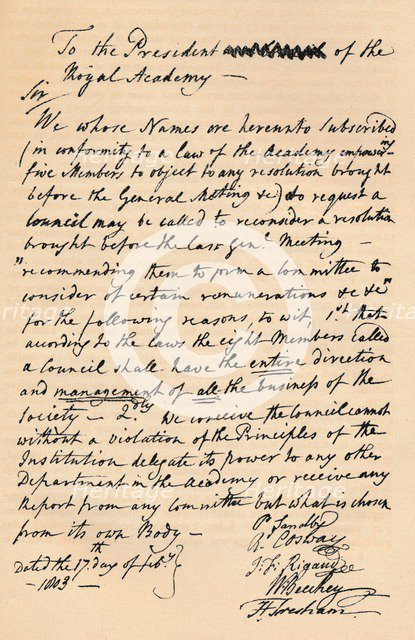 To the President of the
Royal Academy —
Sir
We whose Names are hereunto Subscribed
(in conformity to a law of the Academy empower=ing
five Members to object to any resolution brought
before the General Meeting &c) do request a
Council may be called to reconsider a resolution
brought before the last Genl. Meeting —
"recommending them to form a Committee to
consider of certain remunerations &c &c"
for the following reasons, to wit, 1st. that
according to the Laws the eight Members called
a Council shall have the entire direction
and management of all the business of the
Society — 2dly We conceive the Council cannot
without a violation of the Principles of the
Institution delegate its power to any other
Department in the Academy or receive any
Report from any Committee but what is chosen
from its own Body —
P. Sandby
R. Cosway
Dated the 17th day of Feby.
J. F. Rigaud
— 1803 —
Wm Beechey
H. Tresham
Heritage
Images